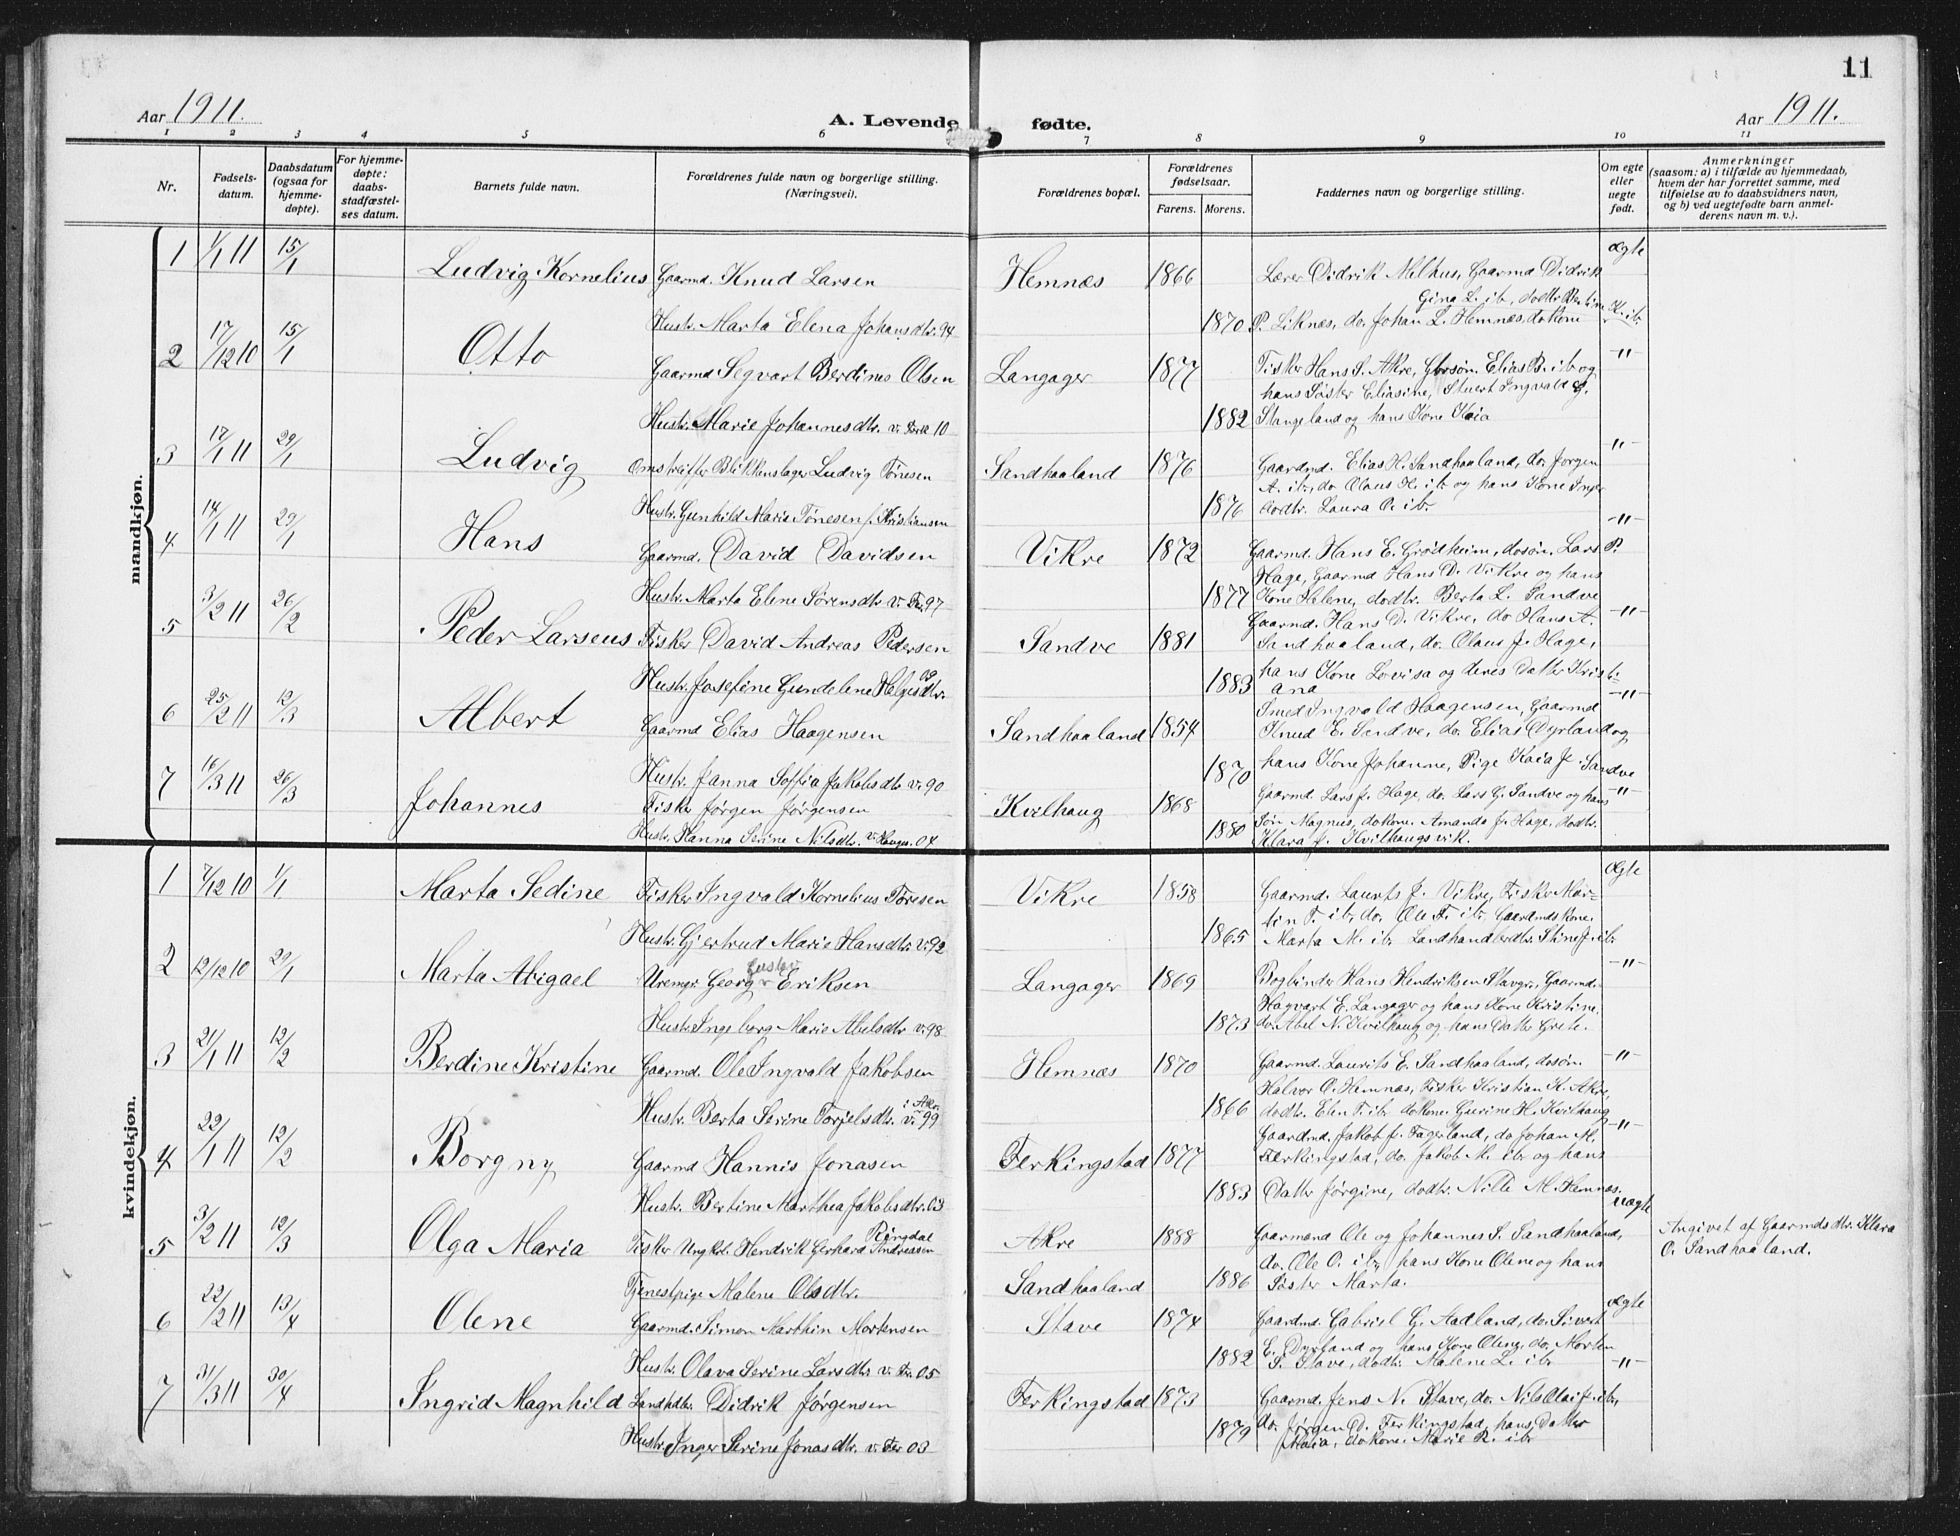 11
Aar 1911.
A. Levende fødte.
Aar 1911.
1 2 3 4 5 6 7 8 9 10 11
Nr.
Fødsels-datum.
Daabsdatum (ogsaa for hjemme-døpte).
For hjemme-døpte: daabs-stadfæstel-ses datum.
Barnets fulde navn.
Forældrenes fulde navn og borgerlige stilling. (Næringsvei).
Forældrenes bopæl.
Forældrenes fødselsaar.
Farens. Morens.
Faddernes navn og borgerlige stilling.
Om egte eller uegte født.
Anmerkninger (saasom: a) i tilfælde av hjemmedaab, hvem der har forrettet samme, med tilføielse av to daabsvidners navn, og b) ved uegtefødte barn anmel-derens navn m. v.).
mandkjøn.
1 1/1 11 15/1 Ludvig Kornelius Gaarmd. Knud Larsen Hemnæs 1866 Lærer Didrik Nilhus, Gaarmd Didrik ægte
Gina L. ib, dodtr Bertine K. ib
Hustr. Marta Elena Johansdtr. 94 1870 P. Liknæs, do. Johan L. Hemnæs, dokone
2 17/12 10 15/1 Otto Gaarmd Segvart Berdines Olsen Langager 1877 Fisker Hans S. Akre, Gbrsøn. Elias B. ib og -"-
hans Søster Eliasine, Stuert Ingvald G.
Hustr. Marie Johannesdtr. v. 10 1882 Stangeland og hans Kone Kaia
3 17/1 11 29/1 Ludvig Omstreifer Blikkenslager Ludvig Tønesen Sandhaaland 1876 Gaardmd. Elias H. Sandhaaland, do. Jørgen -"-
A. ib, do Olaus H. ib og hans Kone Inger
Hustr. Gunhild Marie Tønesen f. Kristiansen 1876 dodtr. Laura O. ib
4 14/1 11 29/1 Hans Gaarmd. David Davidsen Vikre 1872 Gaarmd. Hans E. Grødheim, dosøn. Lars P. -"-
Hage, Gaarmd Hans D. Vikre og hans
Hustr. Marta Elene Sørensdtr v. Fer 97 1877 Kone Helene, dodtr. Berta L. Sandve
5 3/2 11 26/2 Peder Larseus Fisker David Andreas Pedersen Sandve 1881 Gaarmd. Hans D. Vikre, do Hans A. -"-
Sandhaaland, do. Olaus J. Hage,
Hustr. Josefine Gundelene Helgesdtr. 09 1883 hans Kone Lovisa og deres Datter Kristi-
ana
6 25/2 11 12/3 Albert Gaarmd Elias Haagensen Sandhaaland 1854 Smed Ingvald Haagensen, Gaarmd -"-
Knud E. Sandve, do. Elias Dyrland og
Hustr. Janna Soffia Jakobsdtr v. 90 1870 hans Kone Johanne, Pige Kaia J. Sandve
7 16/3 11 26/3 Johannes Fisker Jørgen Jørgensen Kvilhaug 1868 Gaarmd. Lars J. Hage, do. Lars G. Sandve og hans -"-
Hustr. Hanna Serine Nilsdtr. v. Hauges. 04 1880 Søn Magnus, dokone. Amanda J. Hage, dodtr.
Klara J. Kvilhaugsvik.
kvindekjøn.
1 7/12 10 1/1 Marta Sedine Fisker Ingvald Kornelius Toresen Vikre 1858 Gaarmd. Laurits J. Vikre, Fisker Mar- ægte
tin T. ib, do. Ole T. ib, Gaardmdskone.
Hustr. Gjertrud Marie Hansdtr v. 92 1865 Marta M. ib Landhandlerdtr. Stine J. ib
2 12/12 10 29/1 Marta Abigael Uremgr. Georg Gustav Eriksen Langager 1869 Bogbinder Hans Hendriksen Stavgr, Gaarmd. -"-
Hagvart E. Langager og hans Kone Kristine.
Hustr. Ingeborg Marie Abelsdtr v. 98 1873 do. Abel N. Kvilhaug og hans Datter Grete.
3 21/1 11 12/2 Berdine Kristine Gaarmd. Ole Ingvald Jakobsen Hemnæs 1870 Gaarmd. Laurits E. Sandhaaland, dosøn. -"-
Halvor O. Hemnæs, Fisker Kristian K. Akre,
Hustr. Berta Serine Torjelsdtr. i Akr. v. 99 1866 dodtr. Elen T. ib dokone. Gurine H. Kvilhaug
4 22/1 11 12/2 Borgny Gaarmd Hannis Jonasen Ferkingstad 1877 Gaardmd. Jakob J. Fagerland, do Johan M. -"-
Ferkingstad, do. Jakob M. ib og hans
Hustr. Bertine Marthea Jakobsdtr. 03 1883 Datter Jørgine, dodtr. Nille M. Hemnæs.
5 3/2 11 12/3 Olga Maria Fisker Ungkl. Hendrik Gerhard Andreassen Ringdal Akre 1888 Gaarmand Ole og Johannes S. Sandhaaland, uægte Angivet af Gaarmdsdtr. Klara
O. Sandhaaland.
do. Ole O. ib, hans Kone Olene og hans
Tjenestpige Malene Olsdtr. Sandhaaland 1886 Søster Marta.
6 22/2 11 13/4 Olene Gaarmd. Simon Marthin Mortensen Stave 1874 Gaardmd. Gabriel G. Aadland, do. Sivert ægte
E. Dyrland og hans Kone Oline, do. Morten
Hustr. Olava Serine Larsdtr v. Fer. 05 1882 S. Stave, dodtr. Malene L. ib
7 31/3 11 30/4 Ingrid Magnhild Landhdlr. Didrik Jørgensen Ferkingstad 1873 Gaarmd. Jens N. Stave, do. Nils Olai J. ib, -"-
do. Jørgen D. Ferkingstad, hans Datter
Hustr. Inger Serine Jonasdtr. v. Fer 03 1879 Maia, dokone. Marie R. ib